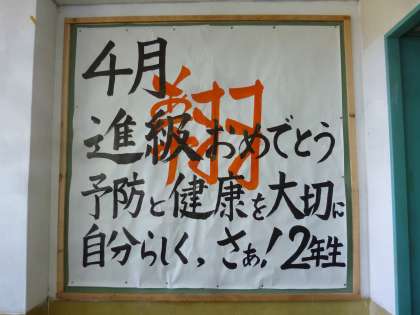 4月
翔
進級おめでとう
予防と健康を大切に
自分らしく,さぁ!2年生